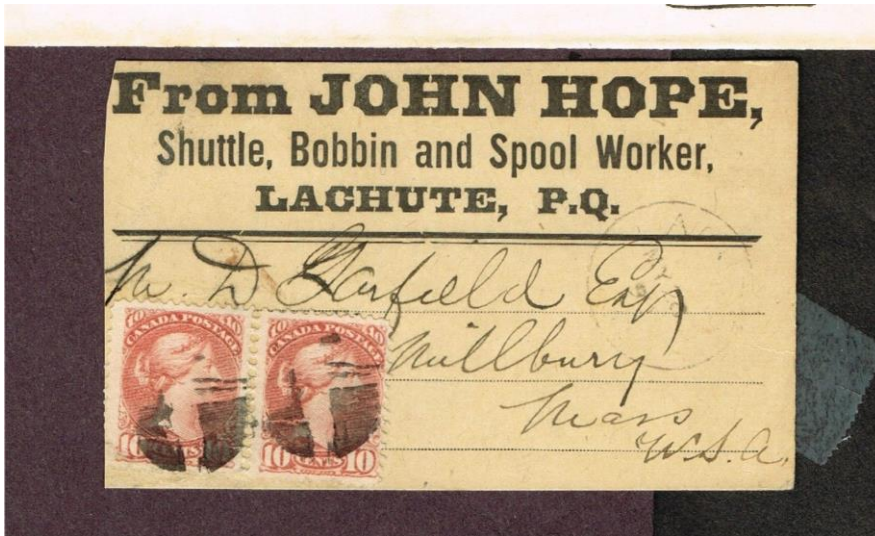 From JOHN HOPE,
Shuttle, Bobbin and Spool Worker,
LACHUTE, P.Q.
M. D Garfield Esq
Millbury
Mass
U.S.A.
10 CANADA POSTAGE 10
10 CENTS
10 CANADA POSTAGE 10
10 CENTS 10